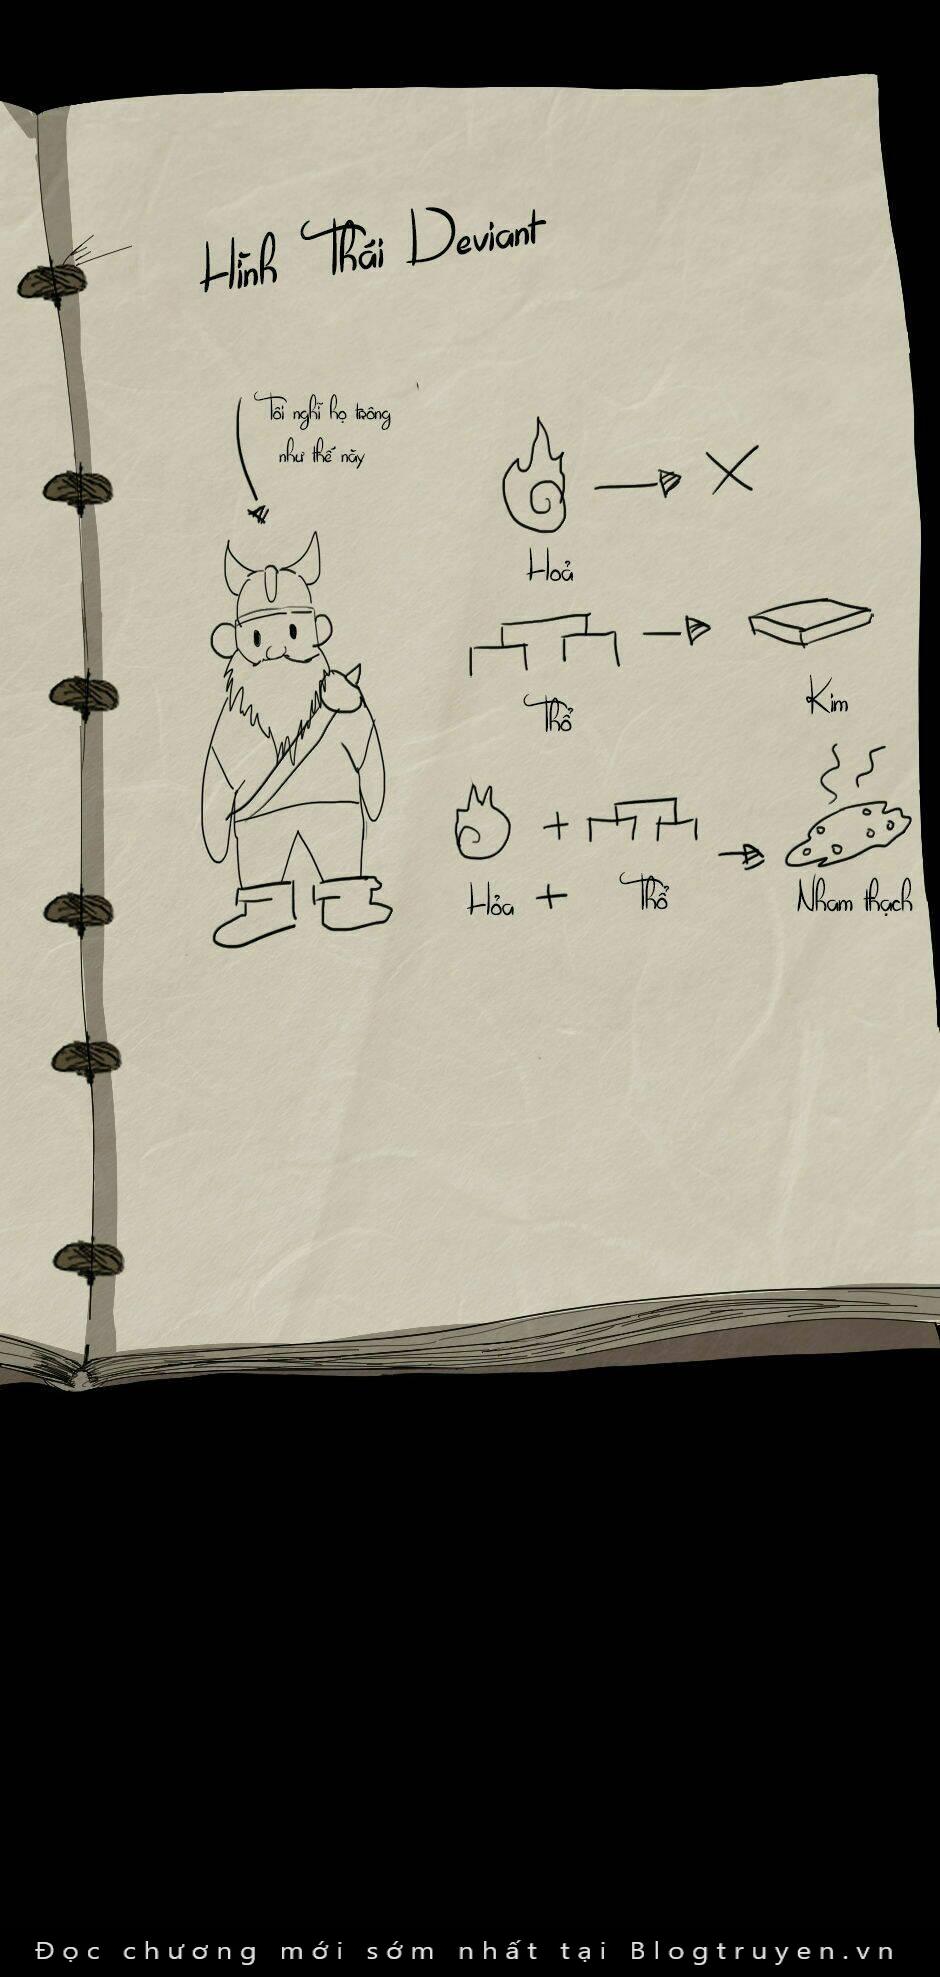 Hình Thái Deviant
Tôi nghĩ họ trông
như thế này
Hoả
Thổ
Kim
Hỏa + Thổ
Nham thạch
Đọc chương mới sớm nhất tại Blogtruyen.vn